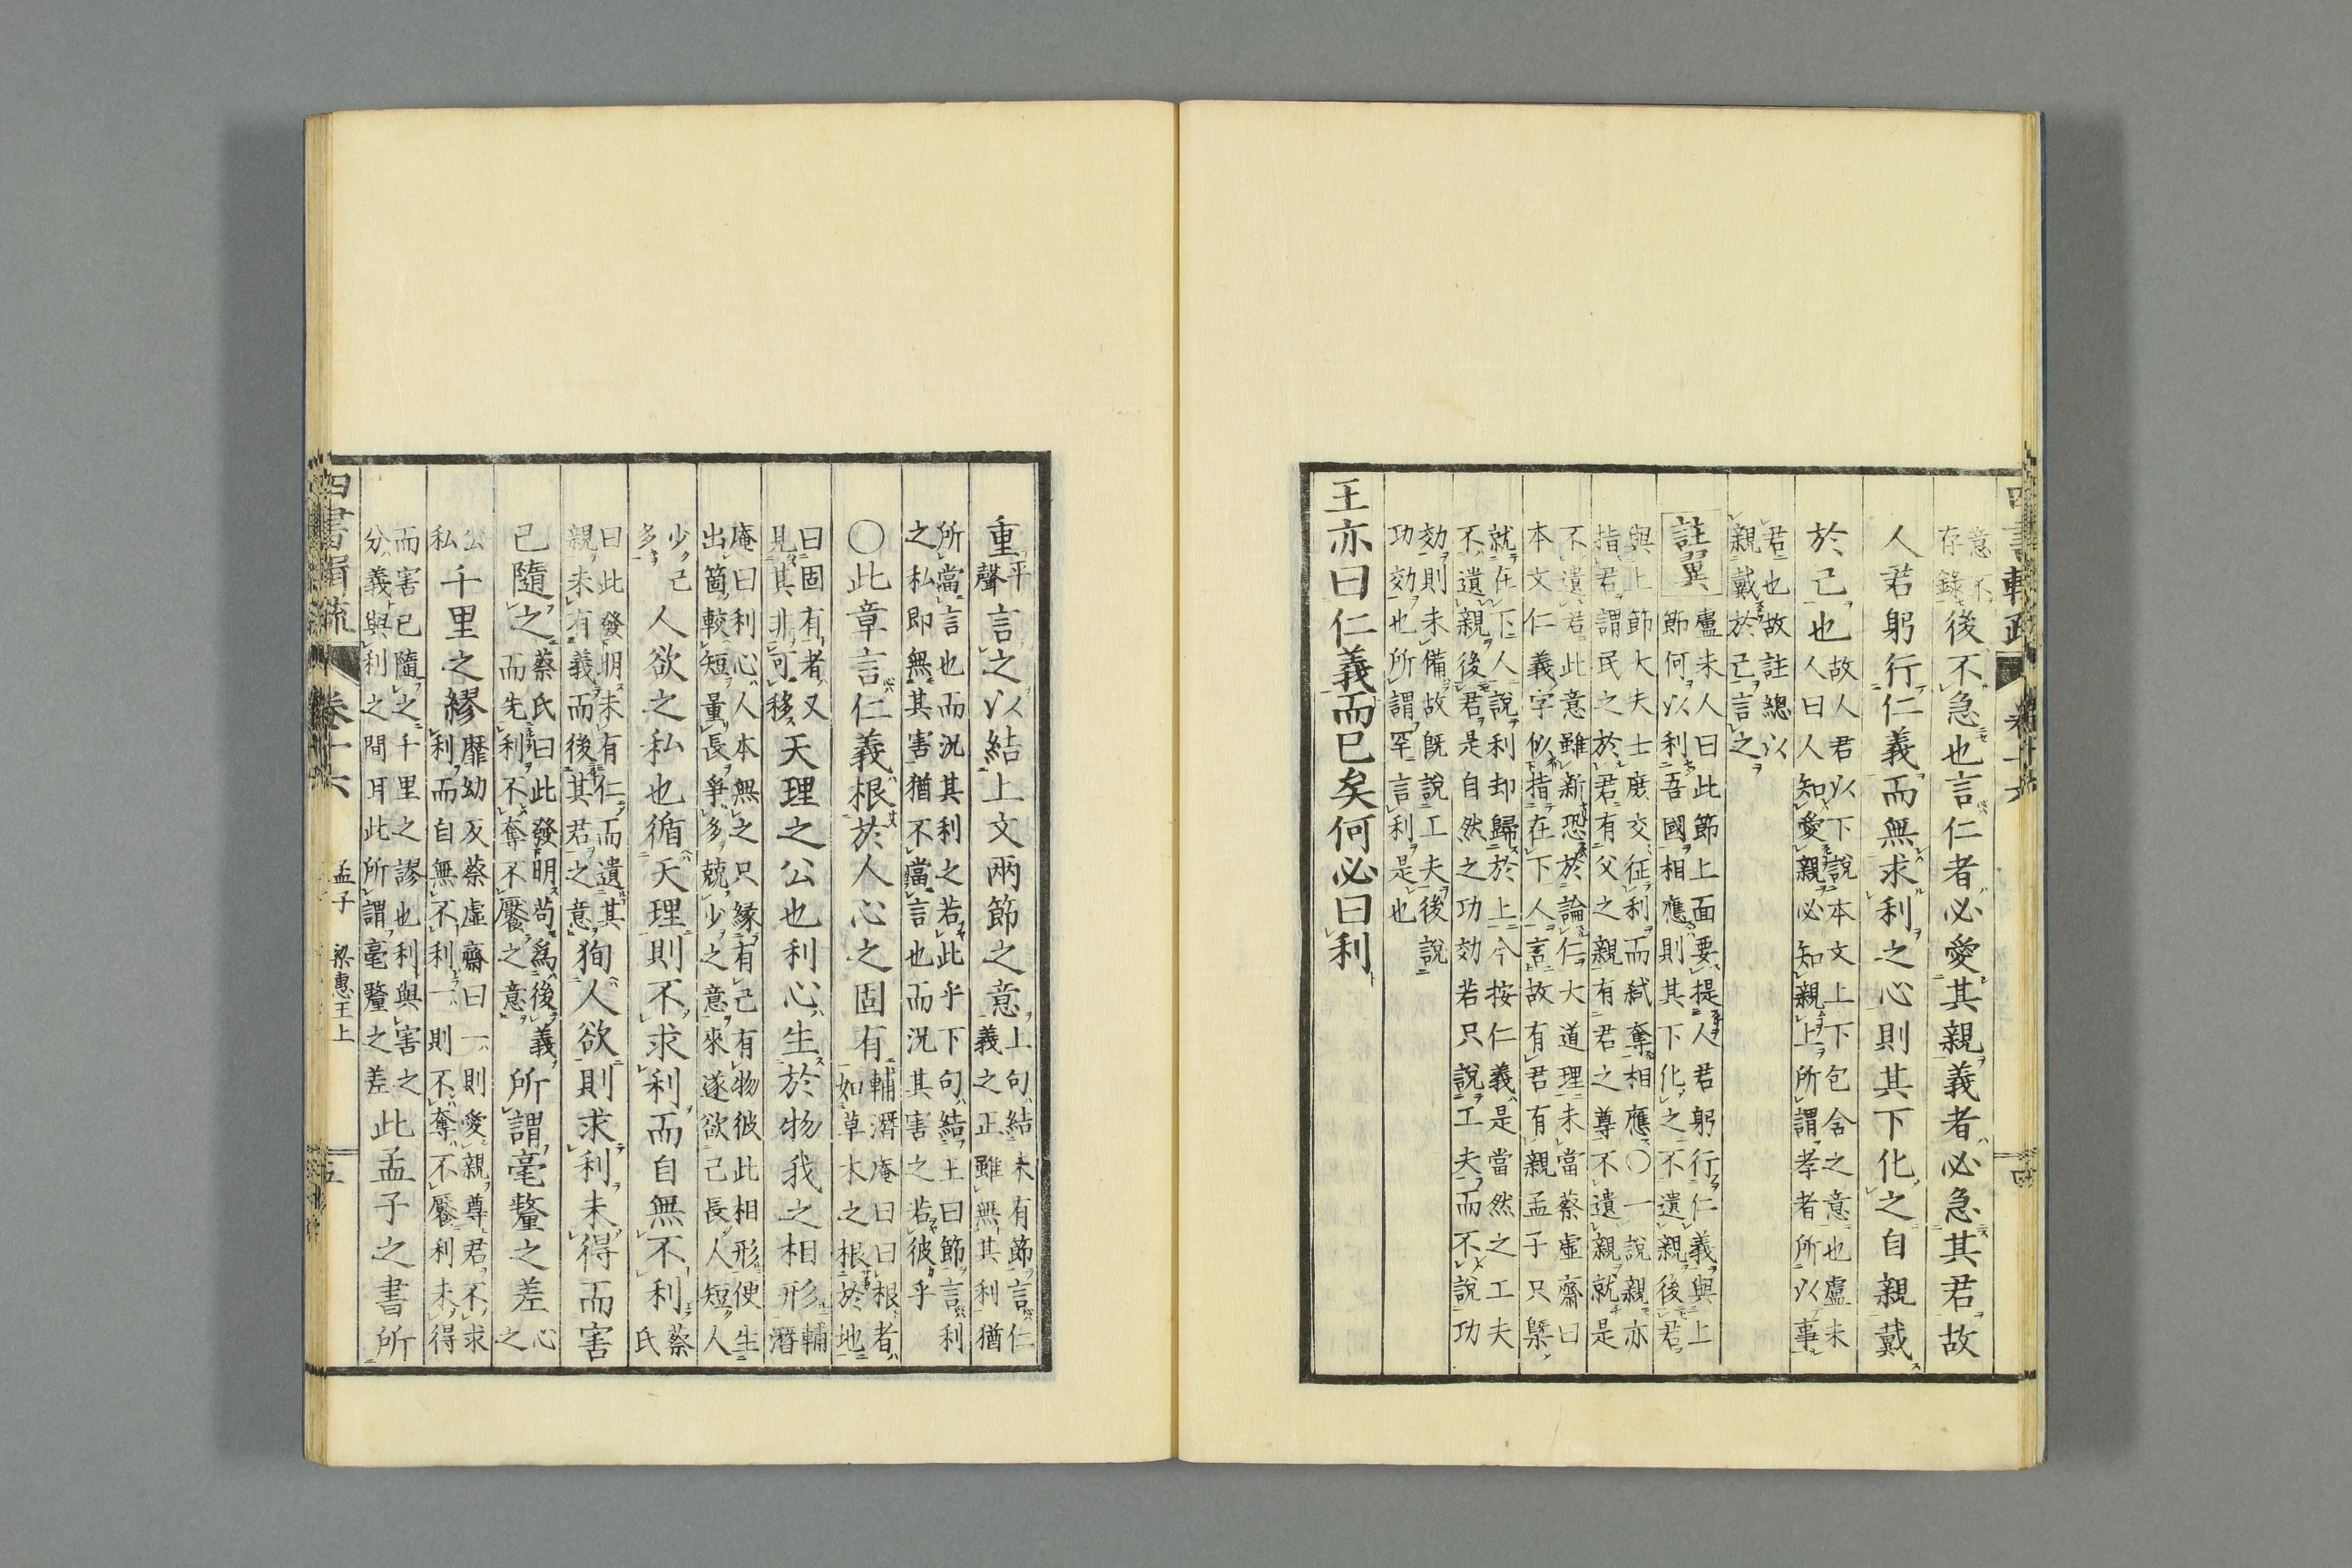 意不
存錄
後不急也言仁者必愛其親義者必急其君故
人君躬行仁義而無求利之心則其下化之自親戴
於己也
故人君以下說本文上下包含之意也盧未
人曰人知愛親必知親上所謂孝者所以事
君也故註總以
親戴於己言之
註翼
盧未人曰此節上面要提人君躬行仁義與上
節何以利吾國相應則其下化之不遺親後君
與上節大夫士庶交征利而弒奪相應○一說親亦
指君謂民之於君有父之親有君之尊不遺親就是
不遺君此意雖新恐於論仁大道理未當蔡虛齋曰
本文仁義字似指在下人言故有君有親孟子只槩
就在下人說利却歸於上今按仁義是當然之工夫
不遺親後君是自然之功効若只說工夫而不說功
効則未備故既說工夫後說
功効也所謂罕言利是也
王亦曰仁義而已矣何必曰利
四書輯疏
卷十六
四
重平
聲
言之以結上文兩節之意
上句結未有節言仁
義之正雖無其利猶
所當言也而況其利之若此乎下句結王曰節言利
之私即無其害猶不當言也而況其害之若彼乎
○此章言仁義根於人心之固有
輔潛庵曰曰根者
如草木之根於地
曰固有者又
見其非可移
天理之公也利心生於物我之相形
輔
潛
庵曰利心人本無之只緣有己有物彼此相形便生
出箇較短量長爭多競少之意來遂欲己長人短人
少己
多
人欲之私也循天理則不求利而自無不利
蔡
氏
曰此發明未有仁而遺其
親未有義而後其君之意
狥人欲則求利未得而害
己隨之
蔡氏曰此發明苟爲後義
而先利不奪不饜之意
所謂毫釐之差
心
之
公
私
千里之繆
靡幼及蔡虛齋曰一則愛親尊君不求
利而自無不利一則不奪不饜利未得
而害已隨之千里之謬也利與害之
分義與利之間耳此所謂毫釐之差
此孟子之書所
四書輯疏
卷十六
孟子
梁惠王上
五